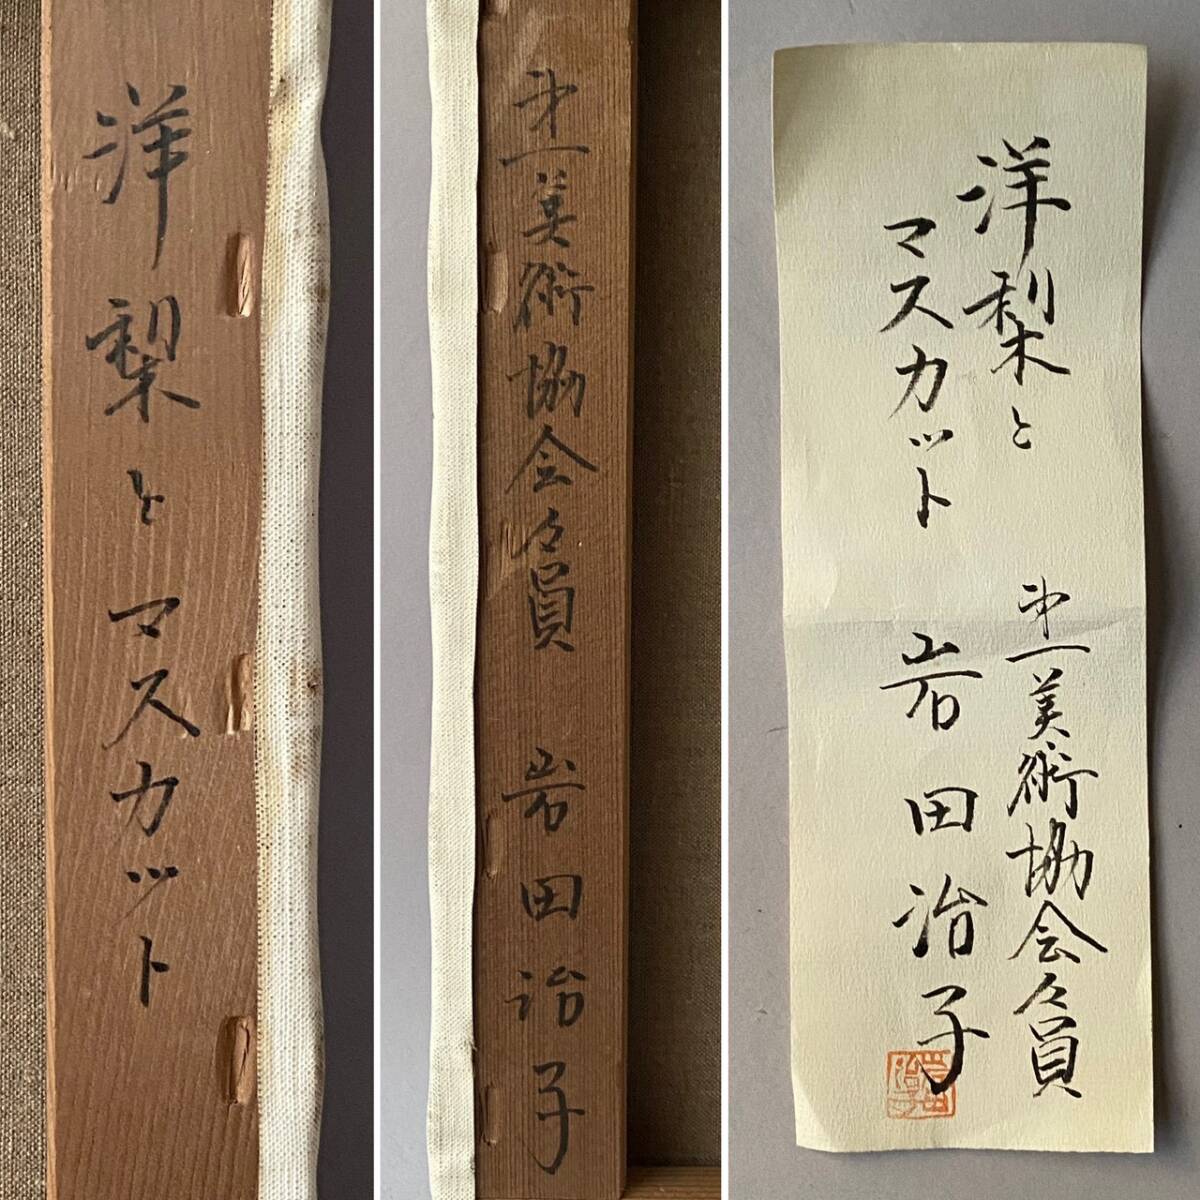 洋梨とマスカット
第一美術協会々員 岩田治子
洋梨と
マスカット
第一美術協会々員
岩田治子
岩田治子